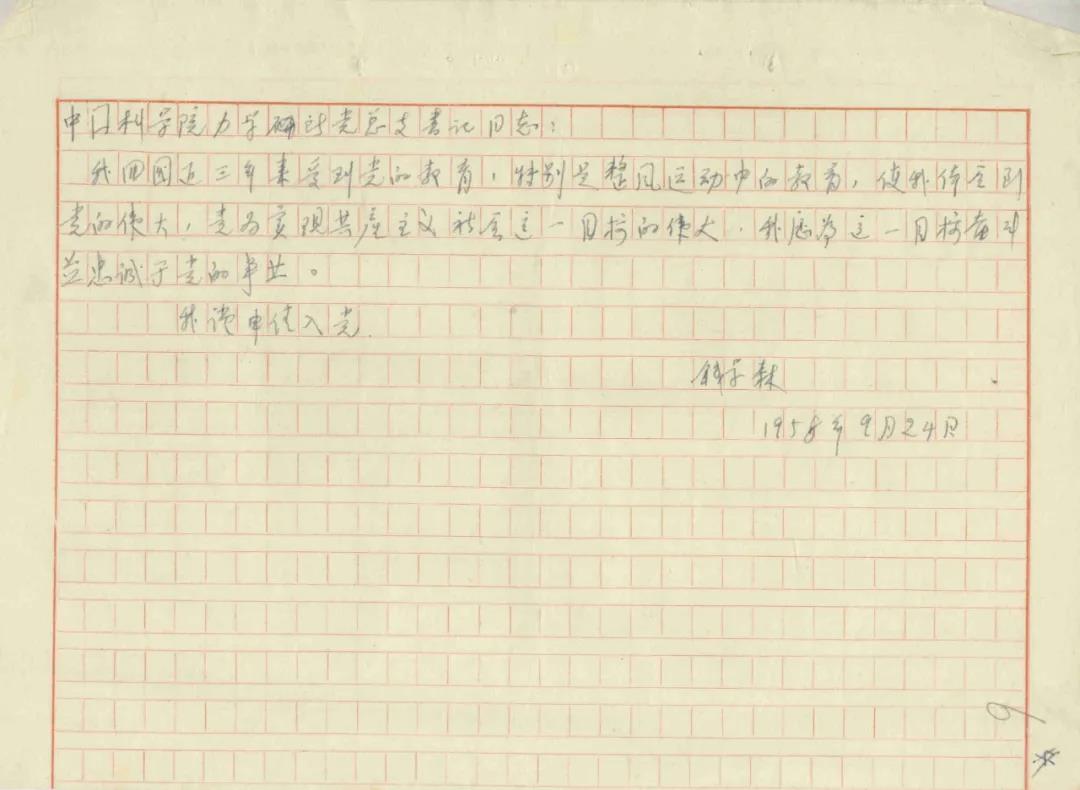 中国科学院力学研究所党总支书记同志：
我回国近三年来受到党的教育，特别是整风运动中的教育，使我体会到
党的伟大，党为实现共产主义社会这一目标的伟大。我愿为这一目标奋斗
并忠诚于党的事业。
我请申请入党.
钱学森
1958年9月24日